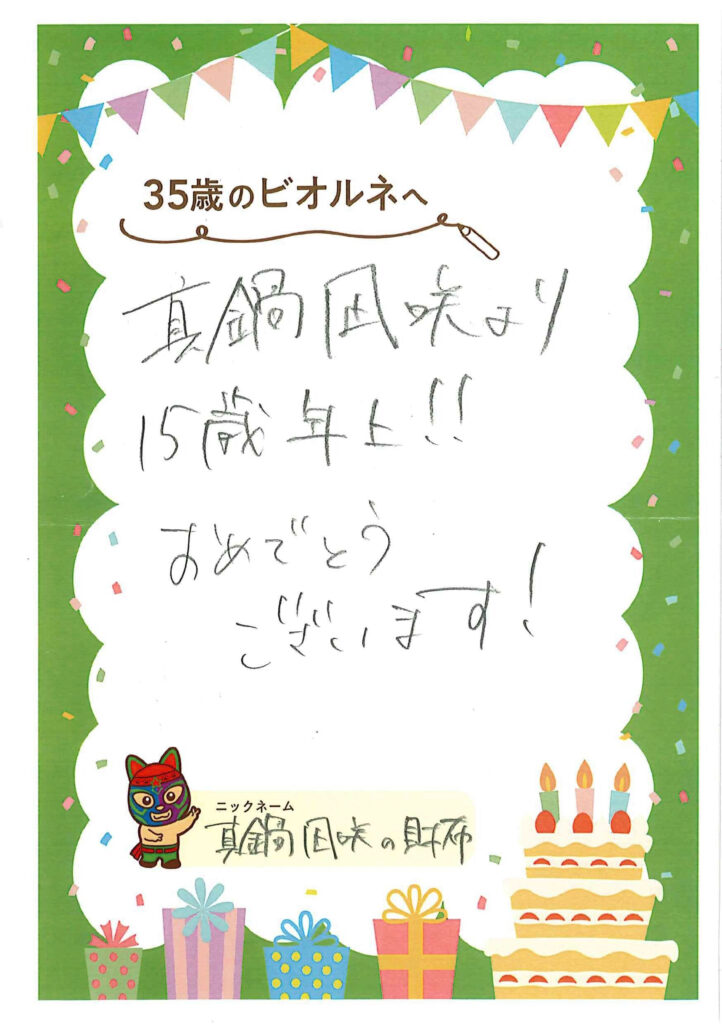 35歳のビオルネへ
真鍋凪咲より
15歳年上!!
おめでとう
ございます!
ニックネーム
真鍋凪咲の財布